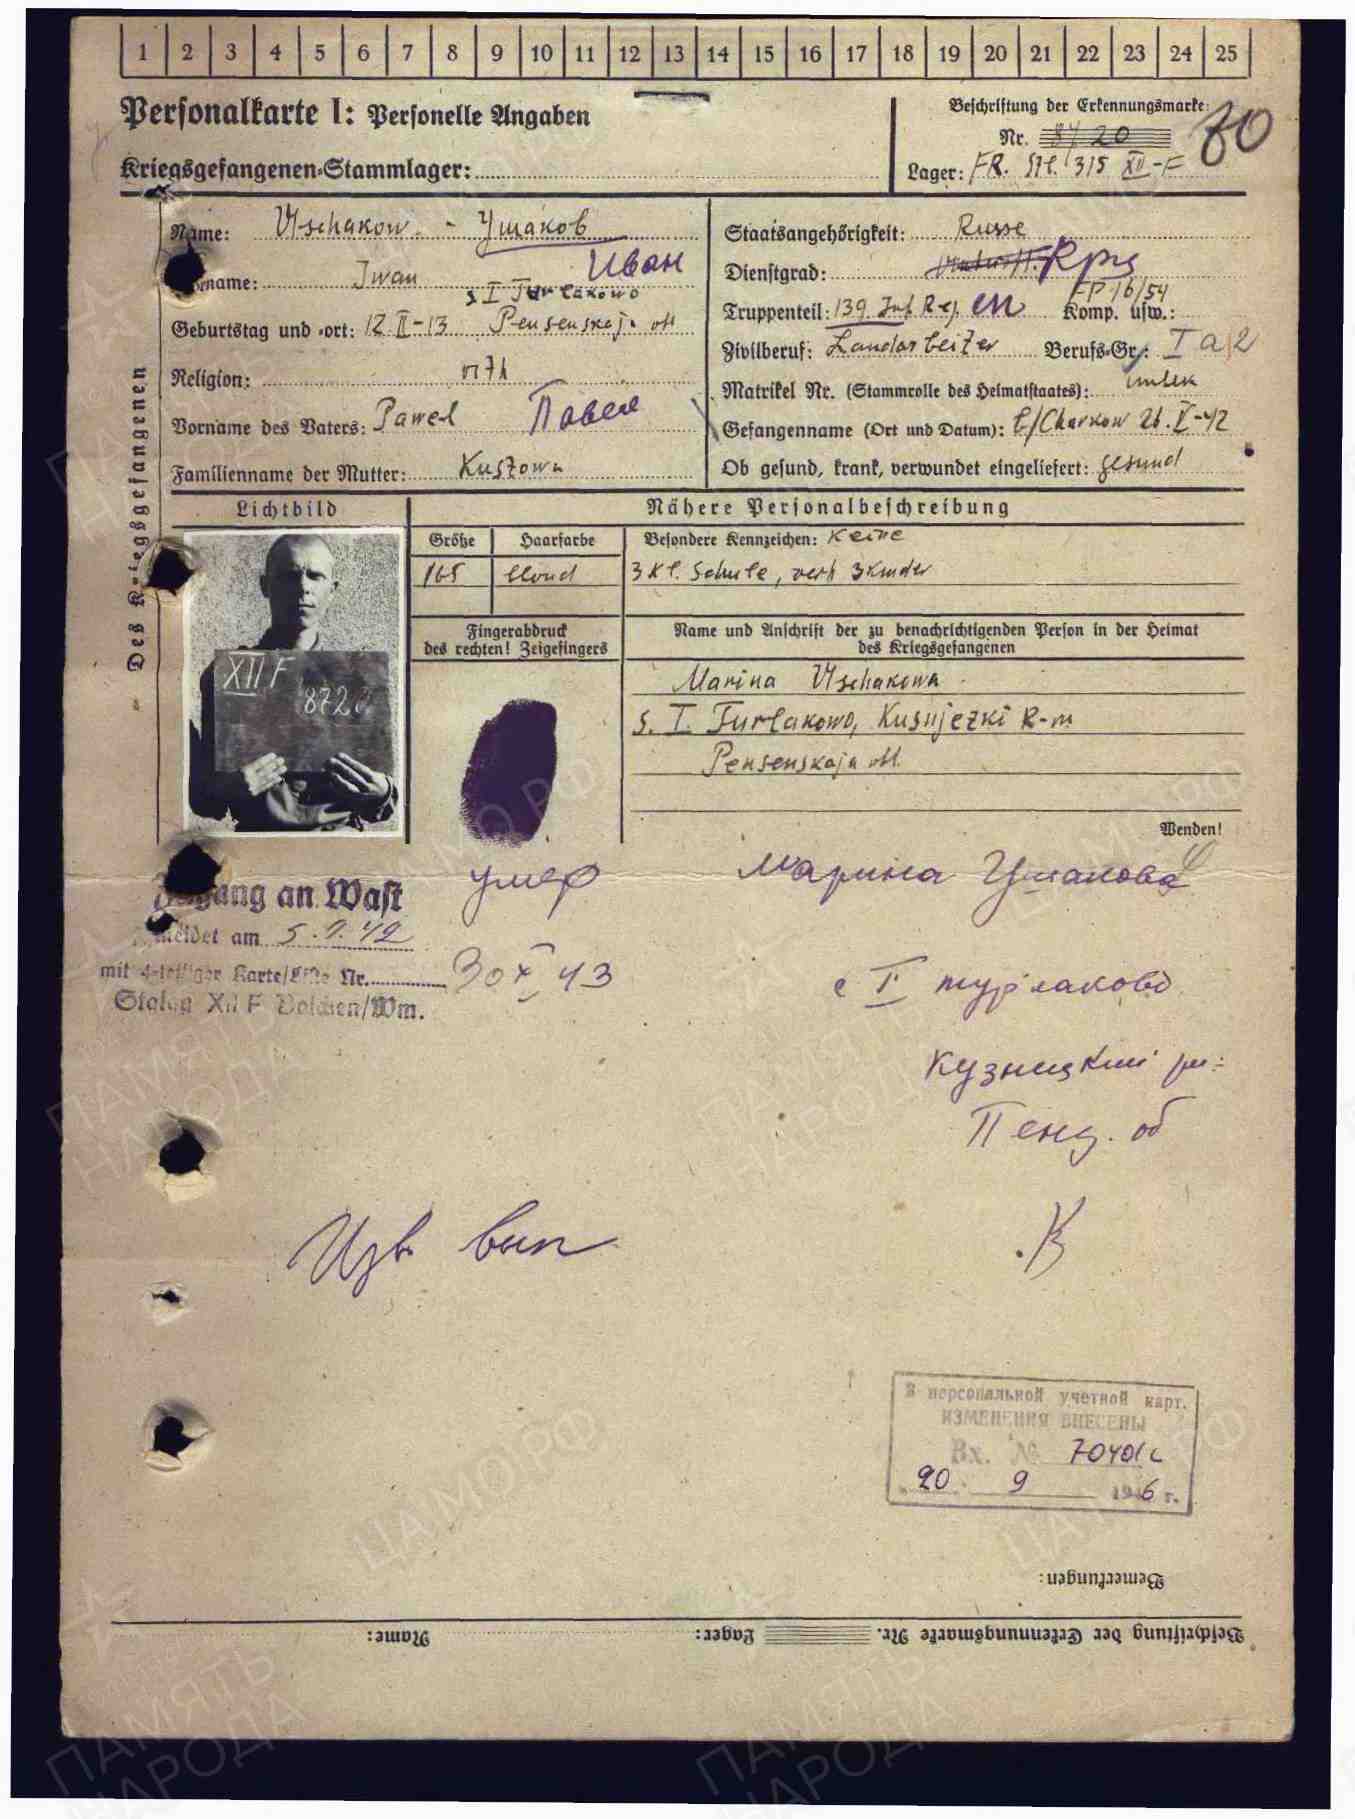 1 2 3 4 5 6 7 8 9 10 11 12 13 14 15 16 17 18 19 20 21 22 23 24 25
Personalkarte I: Personelle Angaben
Kriegsgefangenen-Stammlager:
Beschriftung der Erkennungsmarke:
Nr. 8720
Lager: FR. Stl. 315 XII-F
Des Kriegsgefangenen
Name: Uschakow - Ушаков
Vorname: Iwan Иван
s I Turlakowo
Geburtstag und -ort: 12 II-13 Pensenskaja obl
Religion: orth
Vorname des Vaters: Pawel Павел
Familienname der Mutter:
Staatsangehörigkeit: Russe
Dienstgrad:
Truppenteil: 139. Inf Reg. Komp. usw.:
Zivilberuf: Landarbeiter Berufs-Gr.: I a 2
Matrikel Nr. (Stammrolle des Heimatstaates): unbek
Gefangenname (Ort und Datum): b/Charkow 26. V-42
Ob gesund, krank, verwundet eingeliefert: gesund
Lichtbild
Nähere Personalbeschreibung
Größe Haarfarbe Besondere Kennzeichen: Keine
165 blond 3 Kl. Schule, verh 3 Kinder
XII F
872
Fingerabdruck
des rechten! Zeigefingers
Name und Anschrift der zu benachrichtigenden Person in der Heimat
des Kriegsgefangenen
Marina Uschakowa
s. I. Turlakowo, Kusnjezki R-n
Pensenskaja obl.
Wenden!
Zugang an Wast
gemeldet am 5.9.42
mit 4-teiliger Karte/Liste Nr.
Stalag XII F Bolchen/Wm.
умер
30 X 43
Марина Ушакова
с I Турлаково
Кузнецкий рн:
Пенз. об
Изв вып
К
В персональной учетной карт.
ИЗМЕНЕНИЯ ВНЕСЕНЫ
Вх. №
20 9 1946 г.
Bemerkungen:
Beschriftung der Erkennungsmarke Nr. Lager: Name:
ПАМЯТЬ НАРОДА
ЦАМО.РФ